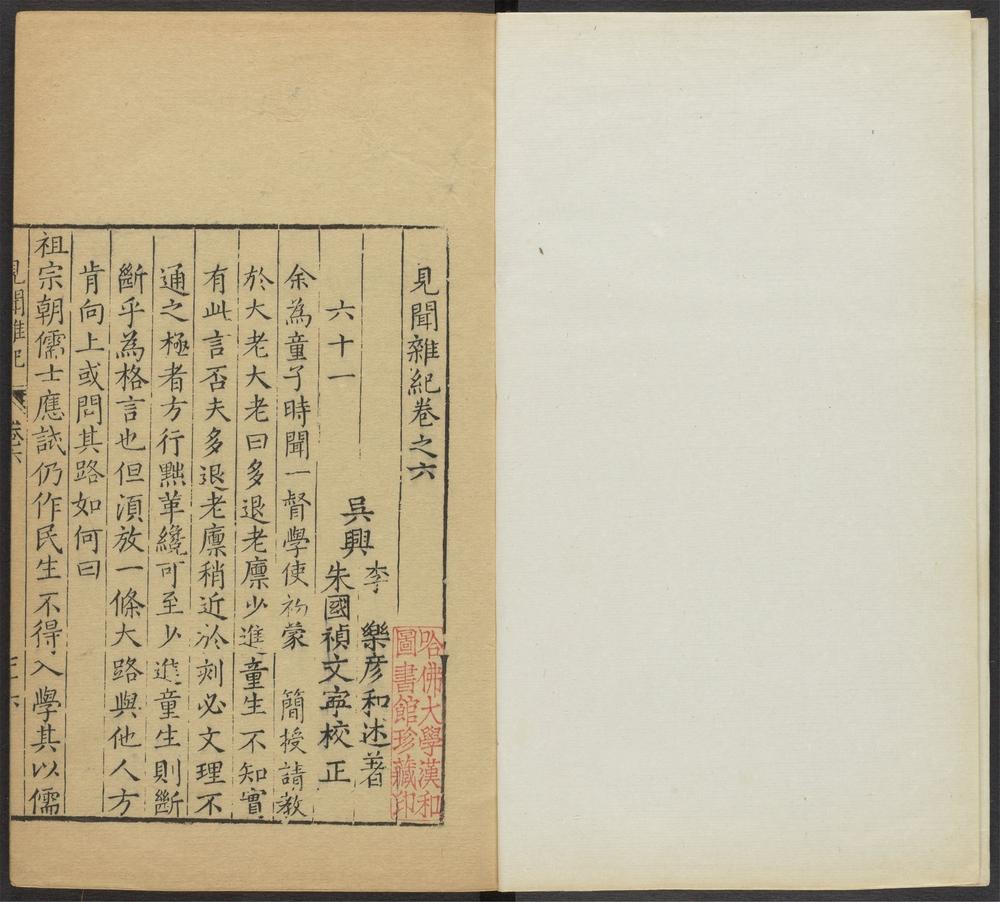 見聞雜紀卷之六
吳興
李 樂彦和述著
朱國禎文寧校正
六十一
余為童子時聞一督學使初蒙 簡授請教
於大老大老曰多退老廩少進童生不知實
有此言否夫多退老廩稍近於刻必文理不
通之極者方行黜革纔可至少進童生則斷
斷乎為格言也但須放一條大路與他人方
肯向上或問其路如何曰
祖宗朝儒士應試仍作民生不得入學其以儒
見聞雜紀
卷六
哈佛大學漢和
圖書館珍藏印